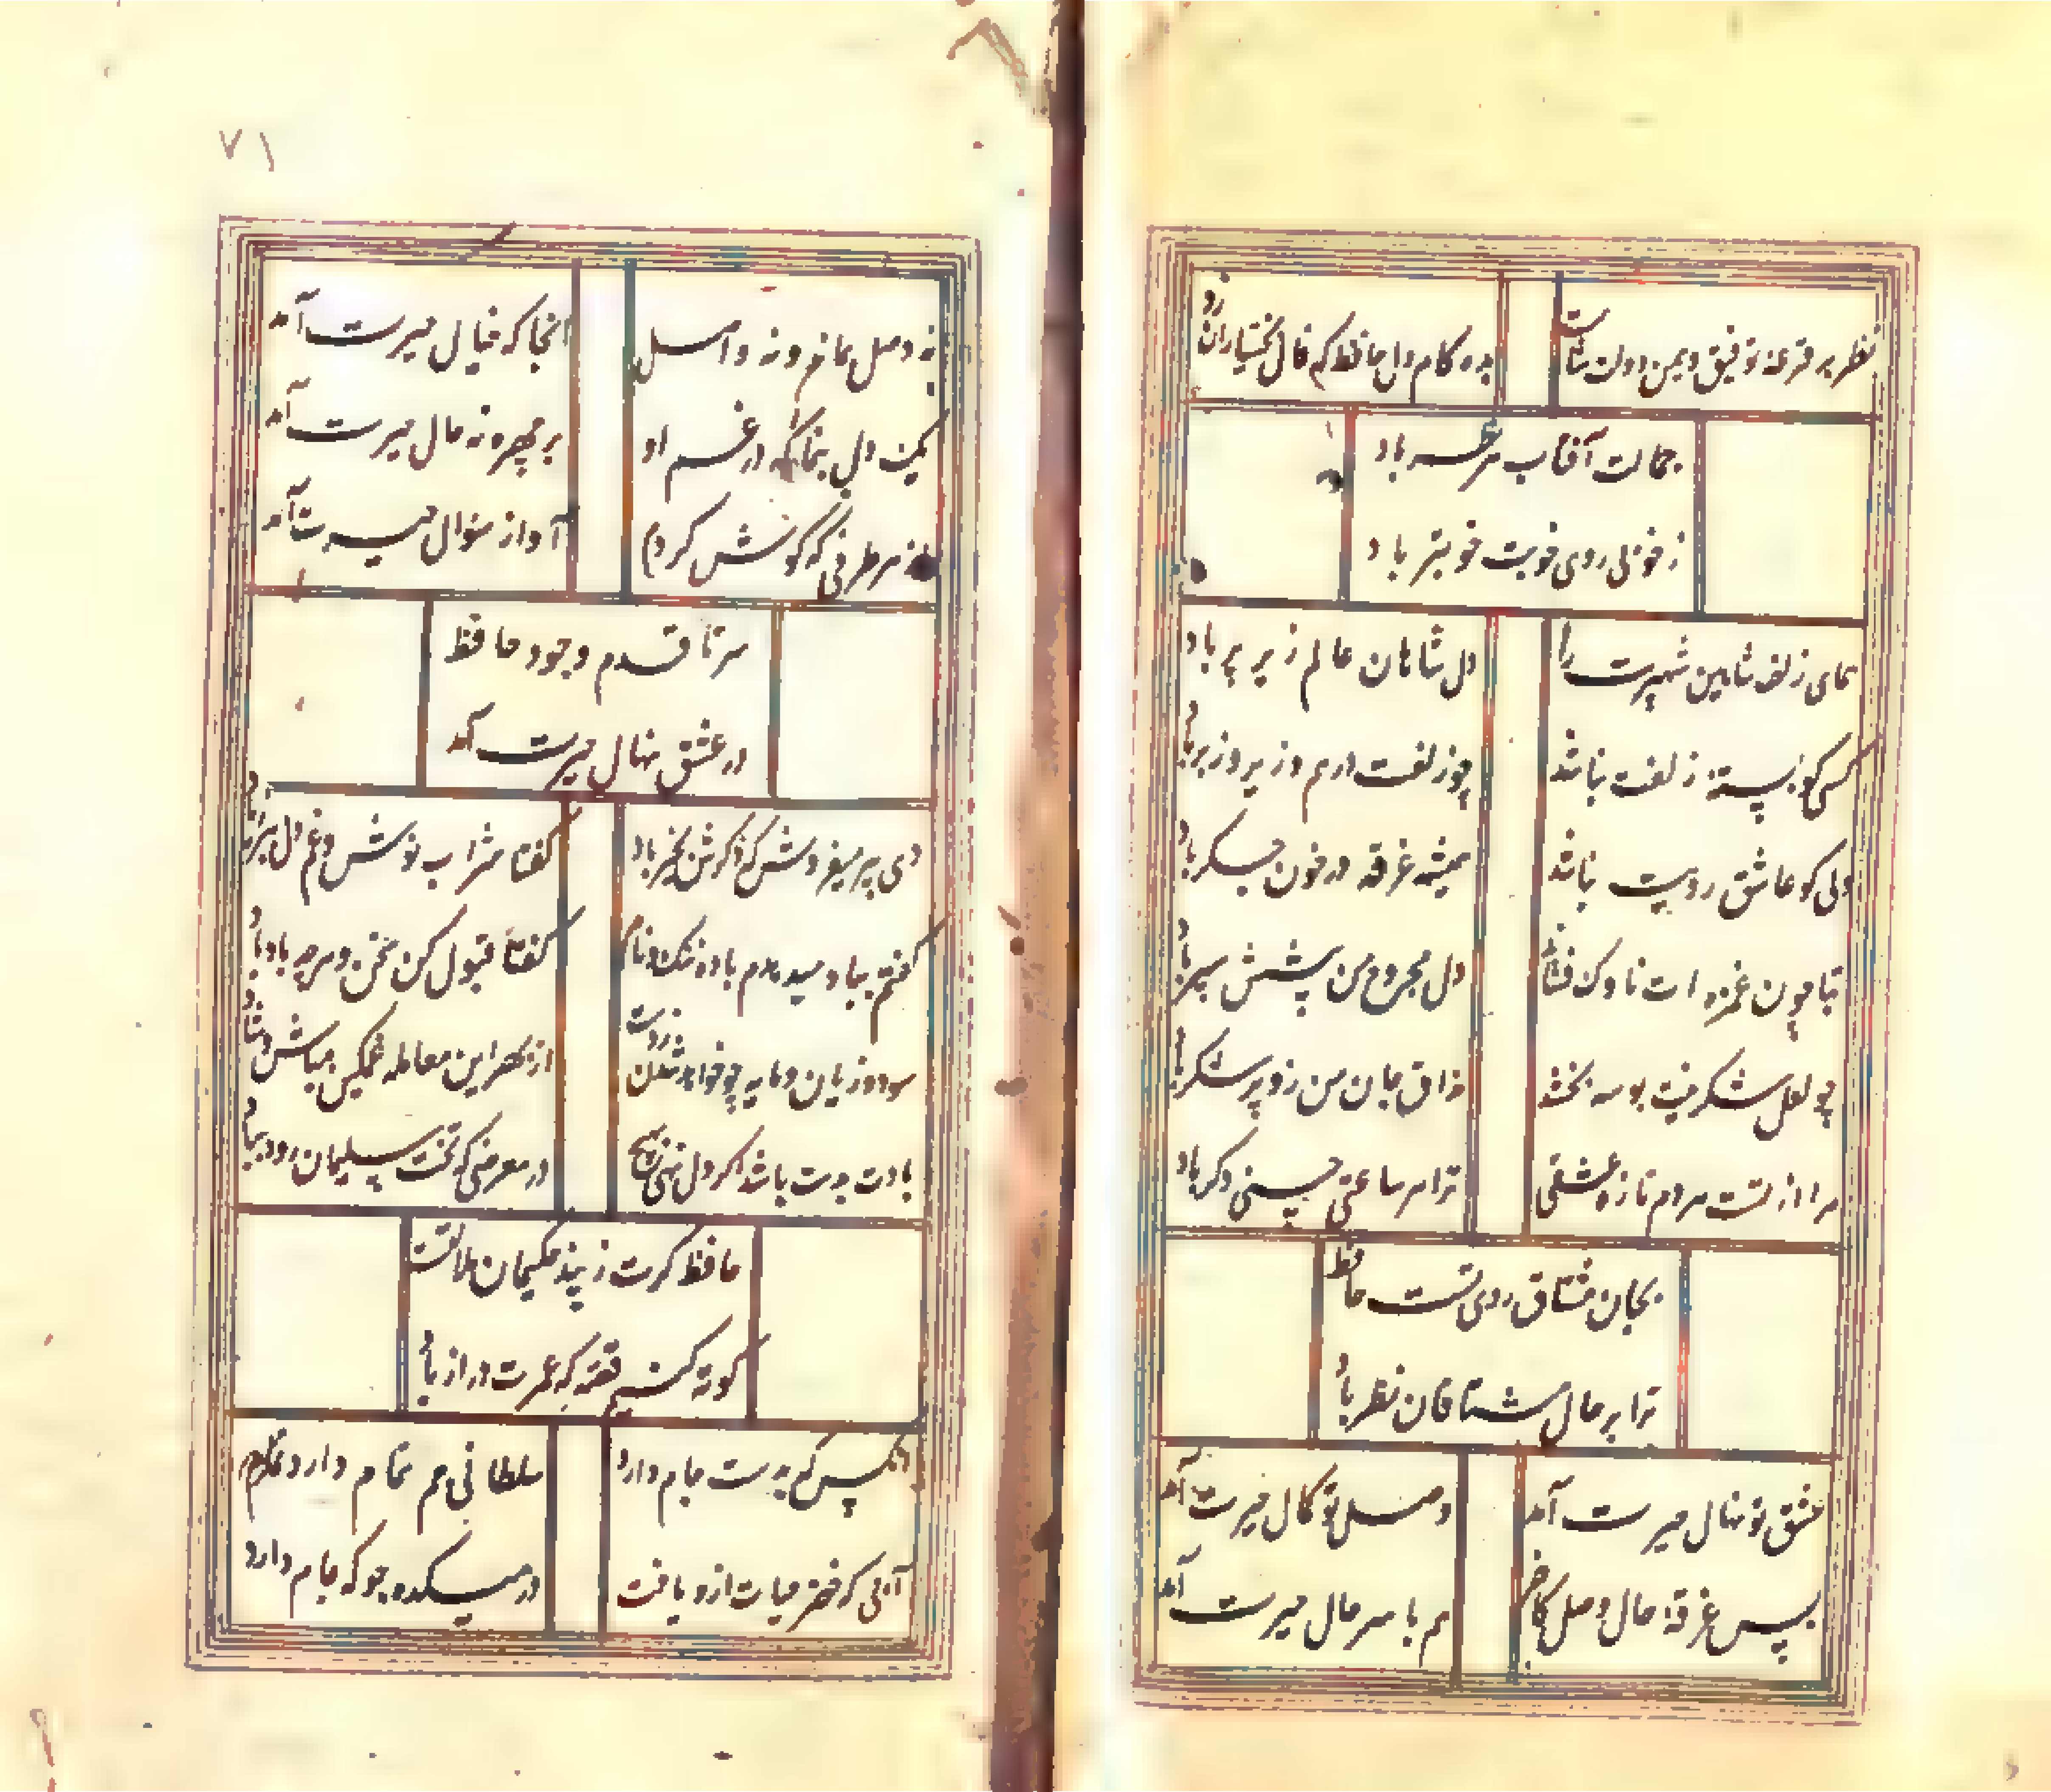 نظر بر قرعه توفیق و یمن دولت شاهست
بده کام دل حافظ که فال بختیاران زد
جمالت آفتاب هر نظر باد
ز خوبی روی خوبت خوبتر باد
همای زلف شاهین شهپرت را
دل شاهان عالم زیر پر باد
کسی کو بسته زلفت نباشد
چو زلفت درهم و زیر و زبر باد
دلی کو عاشق رویت نباشد
همیشه غرقه در خون جگر باد
بتا چون غمزه ات ناوک فشاند
دل مجروح من پیشش سپر باد
چو لعل شکرینت بوسه بخشد
مذاق جان من زو پر شکر باد
مرا از تست هر دم تازه عشقی
ترا هر ساعتی حسنی دگر باد
بجان مشتاق روی تست حافظ
ترا بر حال مشتاقان نظر باد
عشق تو نهال حیرت آمد
وصل تو کمال حیرت آمد
بس غرقه حال وصل کاخر
هم با سر حال حیرت آمد
۷۱
نه وصل بماند و نه واصل
آنجا که خیال حیرت آمد
یک دل بنما که در غم او
بر چهره نه خال حیرت آمد
از هر طرفی که گوش کردم
آواز سؤال حیرت آمد
سر تا قدم وجود حافظ
در عشق نهال حیرت آمد
دی پیر میفروش که ذکرش بخیر باد
گفتا شراب نوش و غم دل ببر ز یاد
گفتم بباد میدهدم باده ننگ و نام
گفتا قبول کن سخن و هر چه باد باد
سود و زیان و مایه چو خواهد شدن ز دست
از بهر این معامله غمگین مباش و شاد
بادت بدست باشد اگر دل نهی بهیچ
در معرضی که تخت سلیمان رود بباد
حافظ گرت ز پند حکیمان ملالتست
کوته کنیم قصه که عمرت دراز باد
آنکس که بدست جام دارد
سلطانی جم تمام دارد مدام
آبی که خضر حیات ازو یافت
در میکده جو که جام دارد